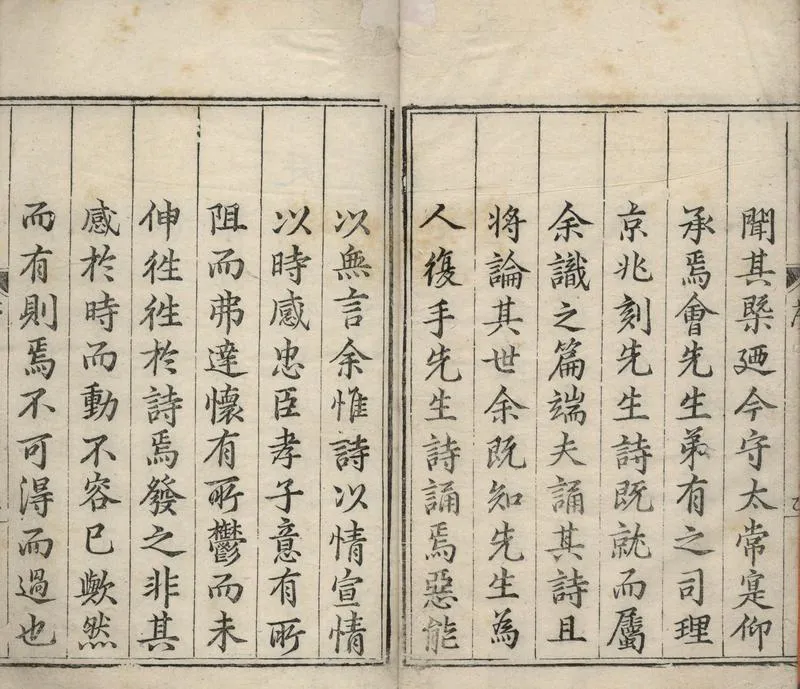 聞其槩廼今守太常寔仰
承焉會先生弟有之司理
京兆刻先生詩既就而屬
余識之篇端夫誦其詩且
將論其世余既知先生為
人復手先生詩誦焉惡能
以無言余惟詩以情宣情
以時感忠臣孝子意有所
阻而弗達懷有所鬱而未
伸徃徃於詩焉發之非其
感於時而動不容已歟然
而有則焉不可得而過也